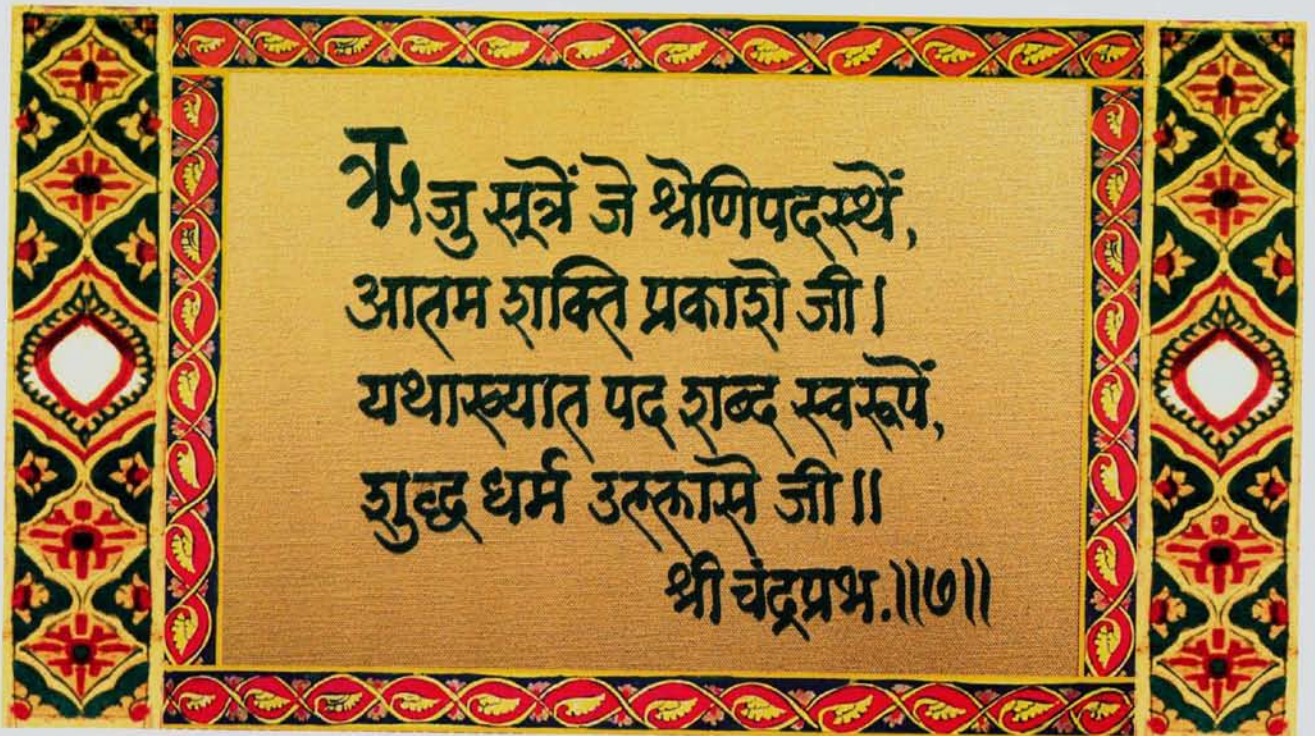 ऋजु सूत्रें जे श्रेणिपदस्थें,
आतम शक्ति प्रकाशे जी।
यथाख्यात पद शब्द स्वरूपें,
शुद्ध धर्म उल्लासे जी॥
श्री चंद्रप्रभ.॥७॥